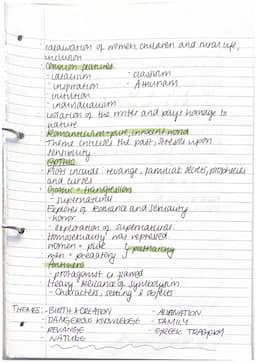 idealisation of women, children and rural life,
inclusion
Common features
- idealism - classism
- inspiration
- intuition
- individualism
isolation of the writer and pays homage to
nature
Romanticism = pure, innocent mood
Theme criticises the past, stresses upon
sensitivity
GOTHIC
Plots include: revenge, familial secrets, prophecies
and curses
Gothic = transgression
- supernatural
Explores of Romance and sexuality
- horror
- exploration of supernatural
Homosexuality was repressed
women = pure } patriarchy
men = predatory
Antihero
- protagonist is flawed
Heavy reliance of symbolism
- Characters, setting & objects
THEMES: - BIRTH & CREATION - ALIENATION
- DANGEROUS KNOWLEDGE - FAMILY
- REVENGE - GREEK TRAGEDY
- NATURE